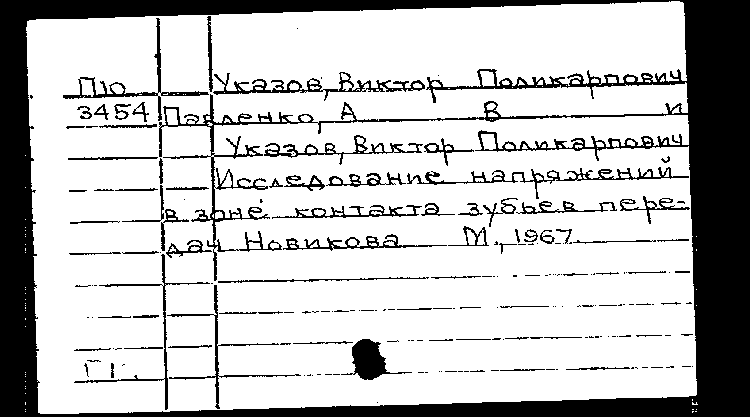 П10 Указов, Виктор Поликарпович
3454 Павленко, А В и
Указов, Виктор Поликарпович
Исследование напряжений
в зоне контакта зубьев пере-
дач Новикова М., 1967.